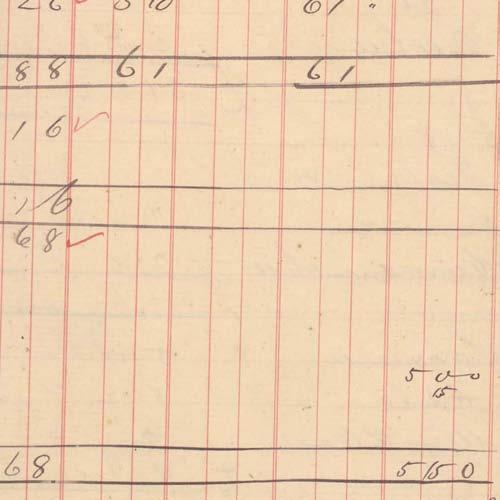 26 510 61 "
88 61 61
16
16
68
500
15
68 5150